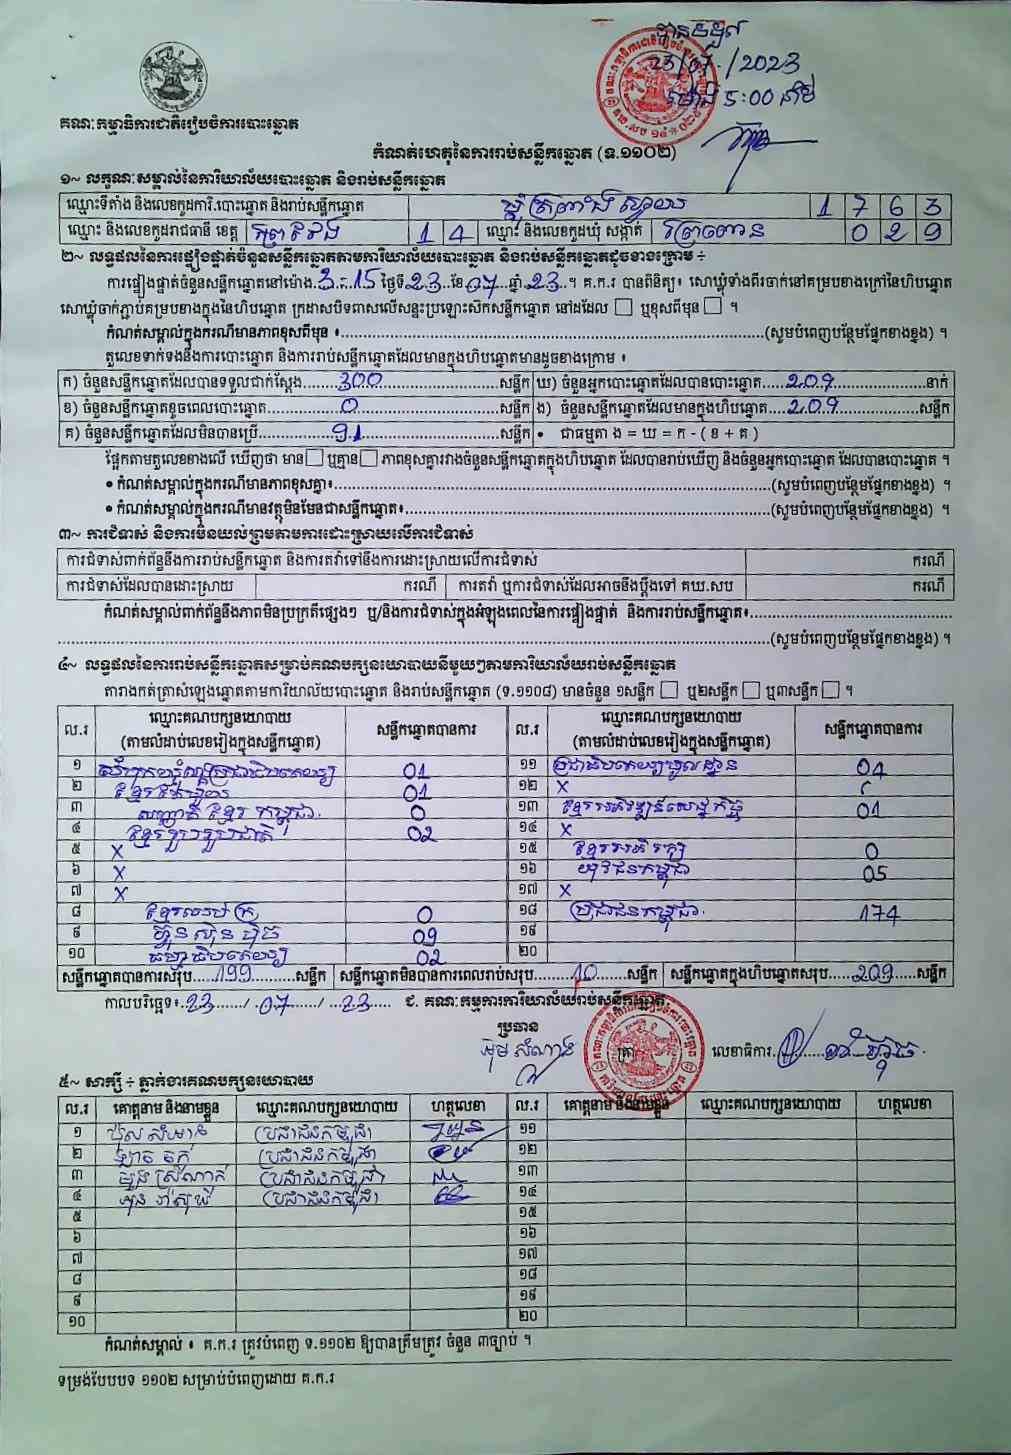 បានទទួល
23/07/2023
ម៉ោង 5:00 នាទី
គណៈកម្មាធិការជាតិរៀបចំការបោះឆ្នោត
កំណត់ហេតុនៃការរាប់សន្លឹកឆ្នោត (ទ.១១០២)
១~ លក្ខណៈសម្គាល់នៃការិយាល័យបោះឆ្នោត និងរាប់សន្លឹកឆ្នោត
ឈ្មោះទីតាំង និងលេខកូដការិ.បោះឆ្នោត និងរាប់សន្លឹកឆ្នោត ភូមិត្រពាំងស្វាយ 1 7 6 3
ឈ្មោះ និងលេខកូដរាជធានី ខេត្ត ព្រៃវែង 1 4 ឈ្មោះ និងលេខកូដឃុំ សង្កាត់ 0 2 9
២~ លទ្ធផលនៃការផ្ទៀងផ្ទាត់ចំនួនសន្លឹកឆ្នោតតាមការិយាល័យបោះឆ្នោត និងរាប់សន្លឹកឆ្នោតដូចខាងក្រោម ÷
ការផ្ទៀងផ្ទាត់ចំនួនសន្លឹកឆ្នោតនៅម៉ោង 3:15 ថ្ងៃទី 23 ខែ 07 ឆ្នាំ 23 ។ គ.ក.រ បានពិនិត្យ៖ សោឃ្លុំទាំងពីរចាក់នៅគម្របខាងក្រៅនៃហិបឆ្នោត
សោឃ្លុំចាក់ភ្ជាប់គម្របខាងក្នុងនៃហិបឆ្នោត ក្រដាសបិទពាសលើសន្ទះប្រឡោះស៊កសន្លឹកឆ្នោត នៅដដែល □ ឬខុសពីមុន □ ។
កំណត់សម្គាល់ក្នុងករណីមានភាពខុសពីមុន ៖ (សូមបំពេញបន្ថែមផ្នែកខាងខ្នង) ។
តួលេខទាក់ទងនឹងការបោះឆ្នោត និងការរាប់សន្លឹកឆ្នោតដែលមានក្នុងហិបឆ្នោតមានដូចខាងក្រោម ៖
ក) ចំនួនសន្លឹកឆ្នោតដែលបានទទួលជាក់ស្តែង 300 សន្លឹក ឃ) ចំនួនអ្នកបោះឆ្នោតដែលបានបោះឆ្នោត 209 នាក់
ខ) ចំនួនសន្លឹកឆ្នោតខូចពេលបោះឆ្នោត 0 សន្លឹក ង) ចំនួនសន្លឹកឆ្នោតដែលមានក្នុងហិបឆ្នោត 209 សន្លឹក
គ) ចំនួនសន្លឹកឆ្នោតដែលមិនបានប្រើ 91 សន្លឹក • ជាធម្មតា ង = ឃ = ក - ( ខ + គ )
ផ្អែកតាមតួលេខខាងលើ ឃើញថា មាន □ ឬគ្មាន □ ភាពខុសគ្នារវាងចំនួនសន្លឹកឆ្នោតក្នុងហិបឆ្នោត ដែលបានរាប់ឃើញ និងចំនួនអ្នកបោះឆ្នោត ដែលបានបោះឆ្នោត ។
• កំណត់សម្គាល់ក្នុងករណីមានភាពខុសគ្នា៖ (សូមបំពេញបន្ថែមផ្នែកខាងខ្នង) ។
• កំណត់សម្គាល់ក្នុងករណីមានវត្ថុមិនមែនជាសន្លឹកឆ្នោត៖ (សូមបំពេញបន្ថែមផ្នែកខាងខ្នង) ។
៣~ ការជំទាស់ និងការមិនយល់ព្រមតាមការដោះស្រាយលើការជំទាស់
ការជំទាស់ពាក់ព័ន្ធនឹងការរាប់សន្លឹកឆ្នោត និងការតវ៉ាទៅនឹងការដោះស្រាយលើការជំទាស់ ករណី
ការជំទាស់ដែលបានដោះស្រាយ ករណី ការតវ៉ា ឬការជំទាស់ដែលអាចនឹងប្តឹងទៅ គឃ.សប ករណី
កំណត់សម្គាល់ពាក់ព័ន្ធនឹងភាពមិនប្រក្រតីផ្សេងៗ ឬ/និងការជំទាស់ក្នុងអំឡុងពេលនៃការផ្ទៀងផ្ទាត់ និងការរាប់សន្លឹកឆ្នោត៖
(សូមបំពេញបន្ថែមផ្នែកខាងខ្នង) ។
៤~ លទ្ធផលនៃការរាប់សន្លឹកឆ្នោតសម្រាប់គណបក្សនយោបាយនីមួយៗតាមការិយាល័យរាប់សន្លឹកឆ្នោត
តារាងកត់ត្រាសំឡេងឆ្នោតតាមការិយាល័យបោះឆ្នោត និងរាប់សន្លឹកឆ្នោត (ទ.១១០៨) មានចំនួន ១សន្លឹក □ ឬ២សន្លឹក □ ឬ៣សន្លឹក □ ។
ល.រ ឈ្មោះគណបក្សនយោបាយ (តាមលំដាប់លេខរៀងក្នុងសន្លឹកឆ្នោត) សន្លឹកឆ្នោតបានការ ល.រ ឈ្មោះគណបក្សនយោបាយ (តាមលំដាប់លេខរៀងក្នុងសន្លឹកឆ្នោត) សន្លឹកឆ្នោតបានការ
១ 01 ១១ ប្រជាធិបតេយ្យមូលដ្ឋាន 04
២ ខ្មែរតែមួយ 01 ១២ X
៣ សញ្ជាតិខ្មែរ កម្ពុជា 0 ១៣ ខ្មែរអភិវឌ្ឍន៍សេដ្ឋកិច្ច 01
៤ ខ្មែររួបរួមជាតិ 02 ១៤ X
៥ X ១៥ ខ្មែរអភិរក្ស 0
៦ X ១៦ យុវជនកម្ពុជា 05
៧ X ១៧ X
៨ 0 ១៨ ប្រជាជនកម្ពុជា 174
៩ ហ៊្វុនស៊ិនប៉ិច 09 ១៩
១០ ធម្មាធិបតេយ្យ 02 ២០
សន្លឹកឆ្នោតបានការសរុប 199 សន្លឹក សន្លឹកឆ្នោតមិនបានការពេលរាប់សរុប 10 សន្លឹក សន្លឹកឆ្នោតក្នុងហិបឆ្នោតសរុប 209 សន្លឹក
កាលបរិច្ឆេទ៖ 23 / 07 / 23 ជ. គណៈកម្មការការិយាល័យរាប់សន្លឹកឆ្នោត
ប្រធាន
អ៊ុម សំណាង (ត្រា) លេខាធិការ
៥~ សាក្សី ÷ ភ្នាក់ងារគណបក្សនយោបាយ
ល.រ គោត្តនាម និងនាមខ្លួន ឈ្មោះគណបក្សនយោបាយ ហត្ថលេខា ល.រ គោត្តនាម និងនាមខ្លួន ឈ្មោះគណបក្សនយោបាយ ហត្ថលេខា
១ ប្រជាជនកម្ពុជា ១១
២ ប្រជាជនកម្ពុជា ១២
៣ ប្រជាជនកម្ពុជា ១៣
៤ ប្រជាជនកម្ពុជា ១៤
៥ ១៥
៦ ១៦
៧ ១៧
៨ ១៨
៩ ១៩
១០ ២០
កំណត់សម្គាល់ ៖ គ.ក.រ ត្រូវបំពេញ ទ.១១០២ ឱ្យបានត្រឹមត្រូវ ចំនួន ៣ច្បាប់ ។
ទម្រង់បែបបទ ១១០២ សម្រាប់បំពេញដោយ គ.ក.រ